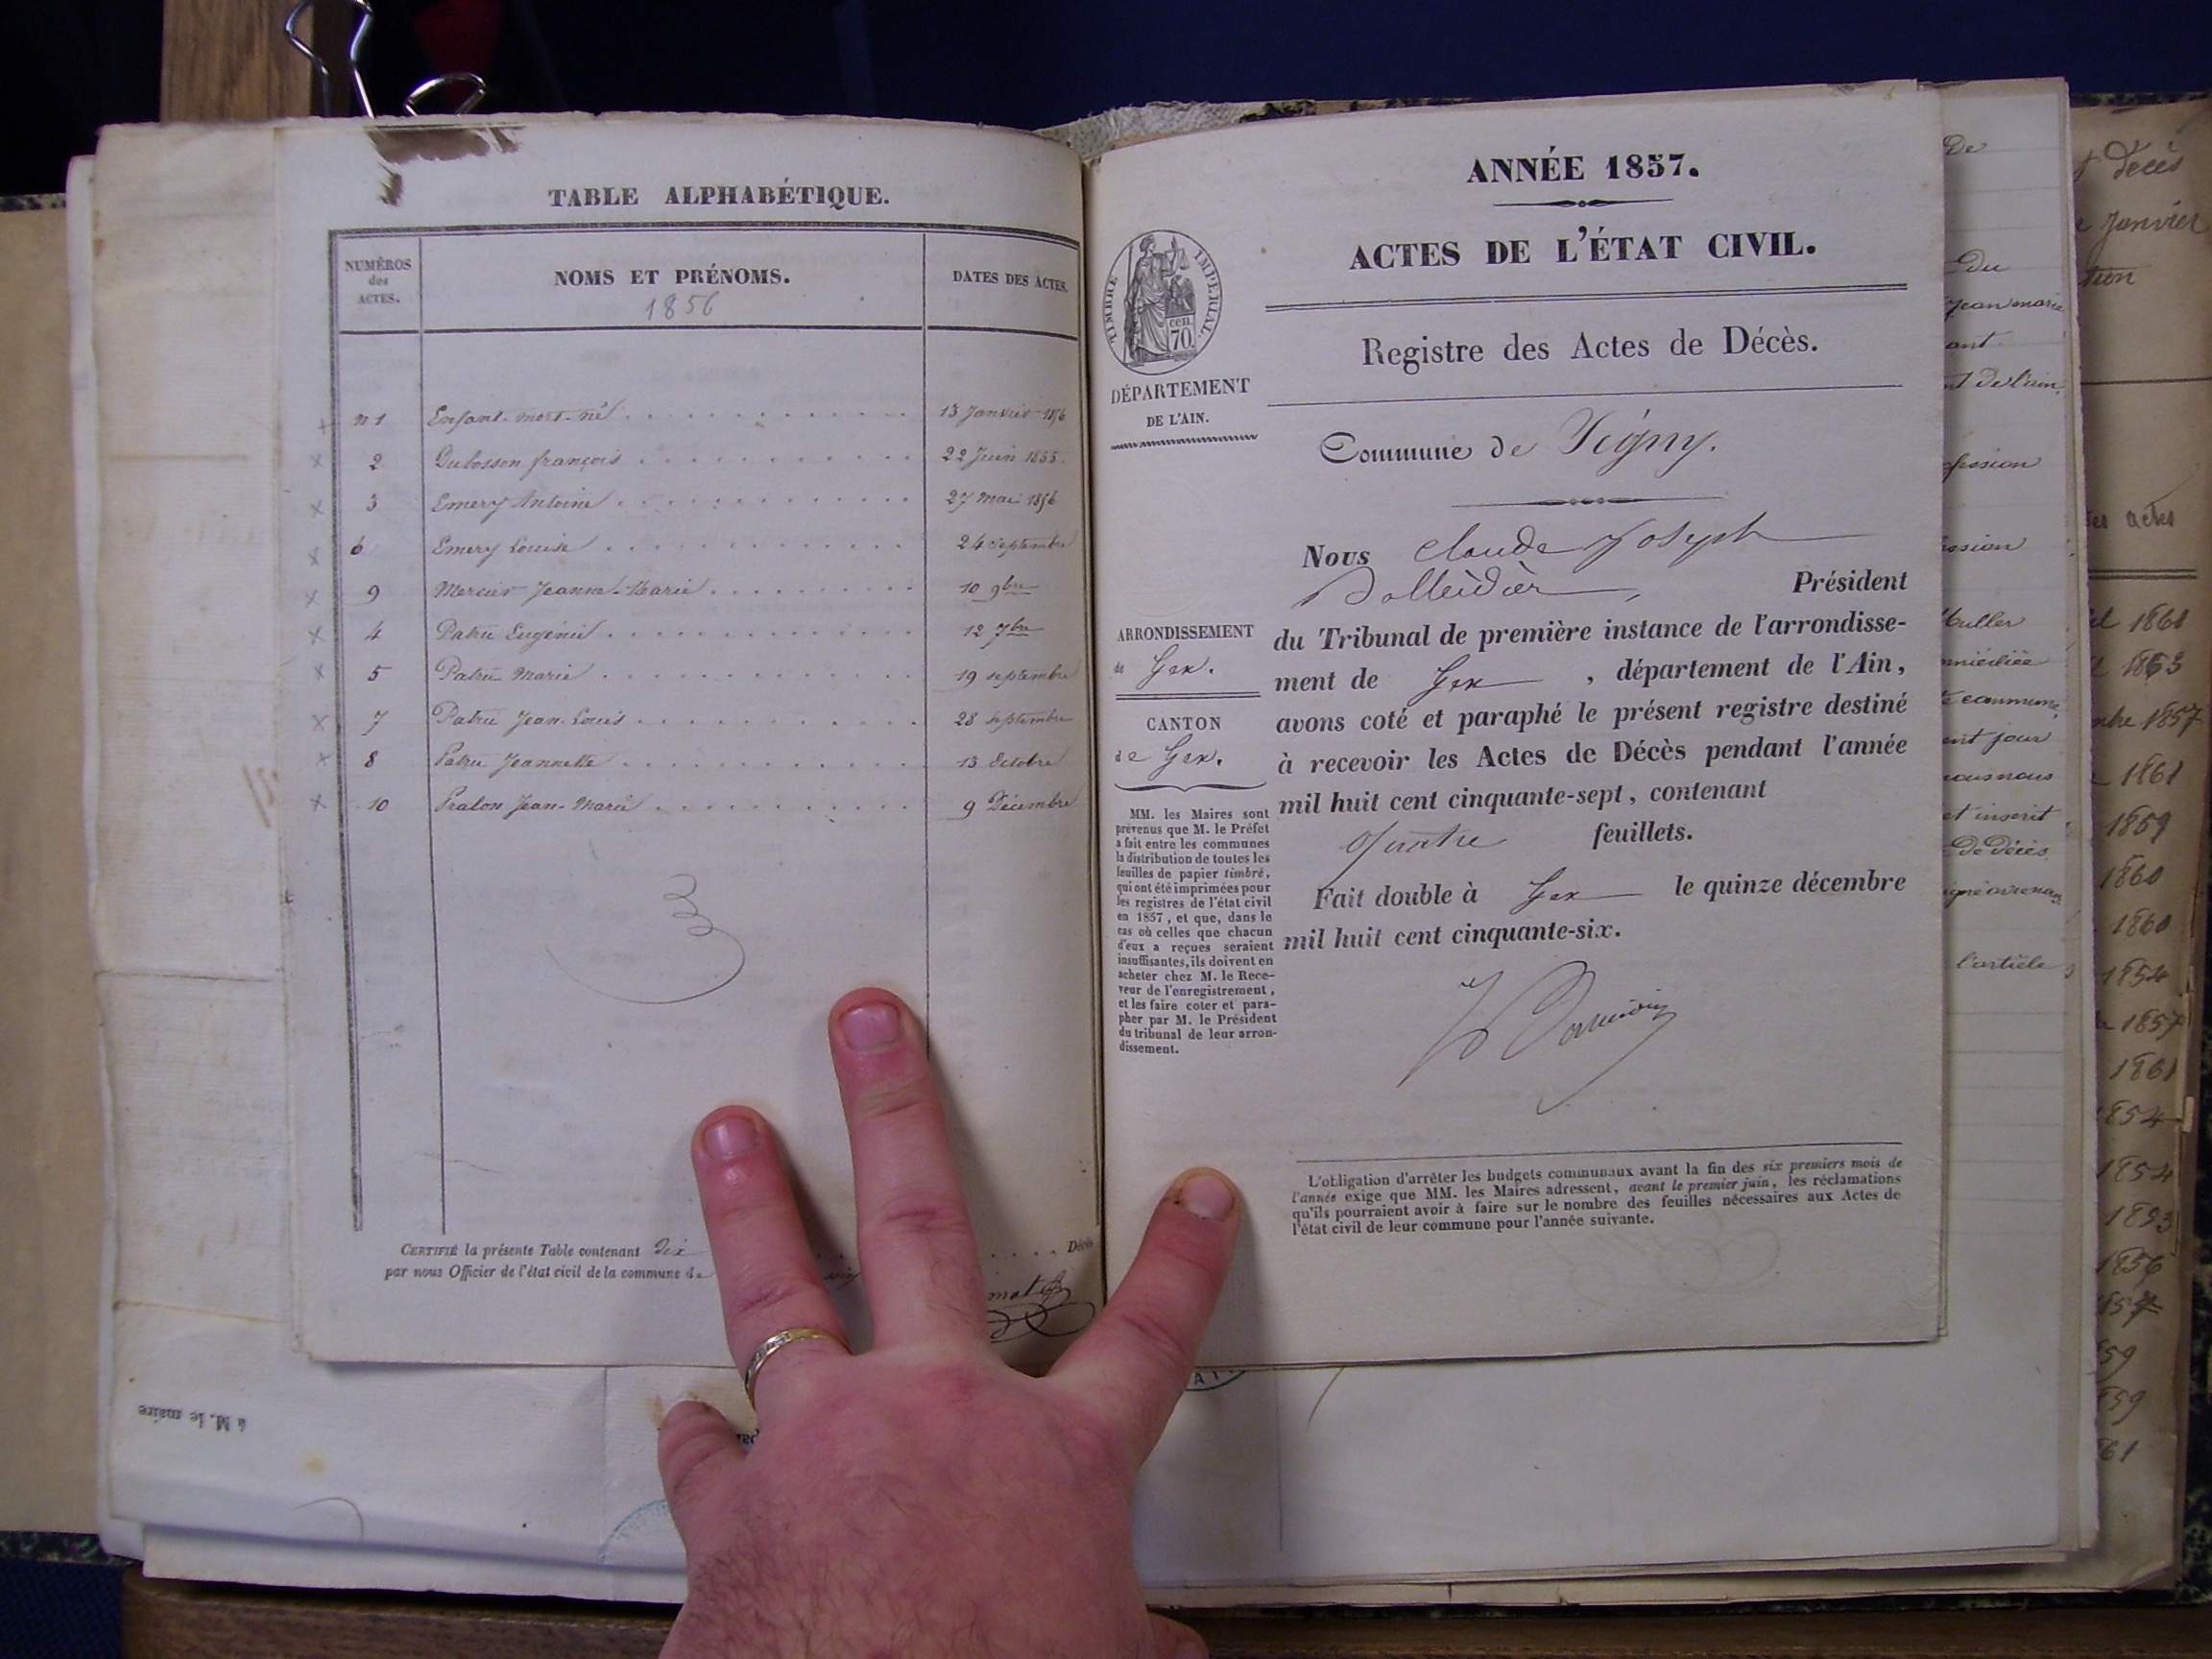 TABLE ALPHABÉTIQUE.
NUMÉROS des ACTES.
NOMS ET PRÉNOMS.
DATES DES ACTES.
1856
n 1 Enfant-mort-né 13 Janvier 1856
2 Dubosson françois 22 Juin 1855.
3 Emery Antoine 27 mai 1856
6 Emery Louise 24 septembre
9 Mercier Jeanne-Marie 10 9bre
4 Patru Eugénie 12 7bre
5 Patru Marie 19 septembre
7 Patru Jean-Louis 28 septembre
8 Patru Jeannette 13 Octobre
10 Pralon Jean-Marie 9 Décembre
CERTIFIÉ la présente Table contenant dix Décès
par nous Officier de l'état civil de la commune de
à M. le maire
ANNÉE 1857.
ACTES DE L'ÉTAT CIVIL.
TIMBRE IMPERIAL
cen. 70.
DÉPARTEMENT
DE L'AIN.
Registre des Actes de Décès.
Commune de Ségny.
Nous Claude Joseph
Président
du Tribunal de première instance de l'arrondisse-
ment de Gex, département de l'Ain,
avons coté et paraphé le présent registre destiné
à recevoir les Actes de Décès pendant l'année
mil huit cent cinquante-sept, contenant
Quatre feuillets.
Fait double à Gex le quinze décembre
mil huit cent cinquante-six.
ARRONDISSEMENT
de Gex.
CANTON
de Gex.
MM. les Maires sont
prévenus que M. le Préfet
a fait entre les communes
la distribution de toutes les
feuilles de papier timbré,
qui ont été imprimées pour
les registres de l'état civil
en 1857, et que, dans le
cas où celles que chacun
d'eux a reçues seraient
insuffisantes, ils doivent en
acheter chez M. le Rece-
veur de l'enregistrement,
et les faire coter et para-
pher par M. le Président
du tribunal de leur arron-
dissement.
L'obligation d'arrêter les budgets communaux avant la fin des six premiers mois de
l'année exige que MM. les Maires adressent, avant le premier juin, les réclamations
qu'ils pourraient avoir à faire sur le nombre des feuilles nécessaires aux Actes de
l'état civil de leur commune pour l'année suivante.
De
Du
Jean marie
de l'ain
commune
jour
et inscrit
de décès
l'article
décès
Janvier
actes
1861
1863
1857
1861
1859
1860
1860
1854
1857
1861
1854
1854
1853
1856
1857
59
59
61